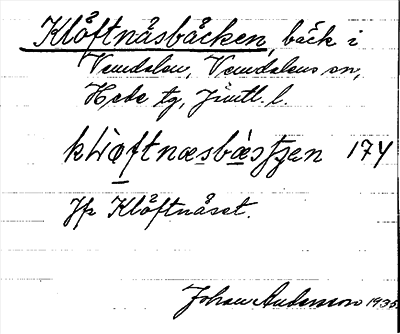 Klöftnåsbäcken, bäck i
Vemdalen, Vemdalens sn,
Hede tg, Jämtl. l.
174
Jfr Klöftnåset.
Johan Anderson 1935